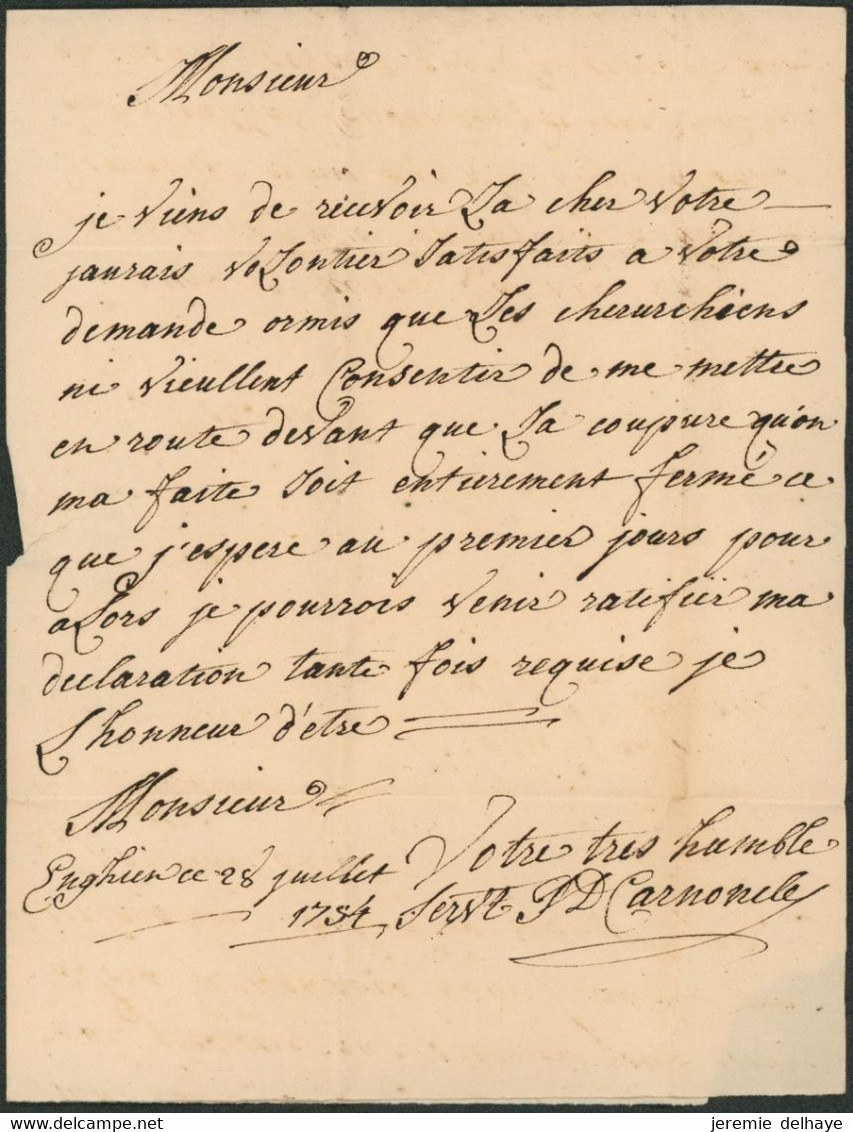 Monsieur
je viens de recevoir La cher votre
jaurais voLontier satisfaits a votre
demande ormis que Les cherurchiens
ni vieullent Consentir de me mettre
en route devant que La coupure qu'on
ma faite soit entierement fermé ce
que j'espere au premier jours pour
aLors je pourrois venir ratifier ma
declaration tante fois requise je
L'honneur d'etre
Monsieur
Votre tres humble
Enghien ce 28 juillet
1784 Servt P D Carnoncle
jeremie delhaye